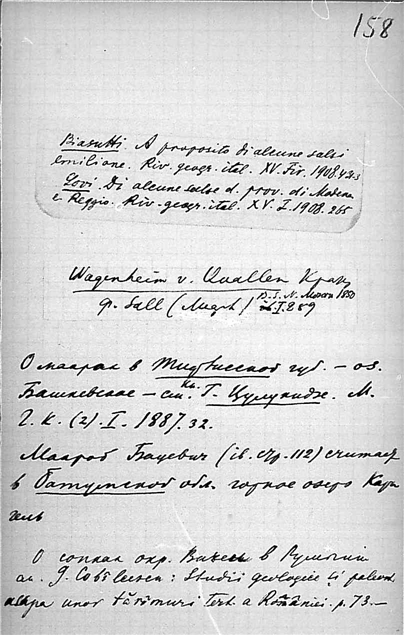 158
Biasutti. A proposito di alcune salse
emiliane. Riv. geogr. ital. XV. Fir. 1908.423
Lovi. Di alcune salse d. prov. di Modena
e Reggio. Riv. geogr. ital. XV. I. 1908. 265
Wagenheim v. Quallen
B. S. N. Moscou 1850
I. 289
О в Тифлисской губ. – оз.
Башкевское – см. Кн. Г. Цулукидзе. М.
Г. К. (2). I. 1887. 32.
Бацевич (ib. стр. 112) считает
в Батумской обл. горное озеро
О сопках окр. в Румынии
Studii geologice și
unor tărâmuri Tert. a României. p. 73.–